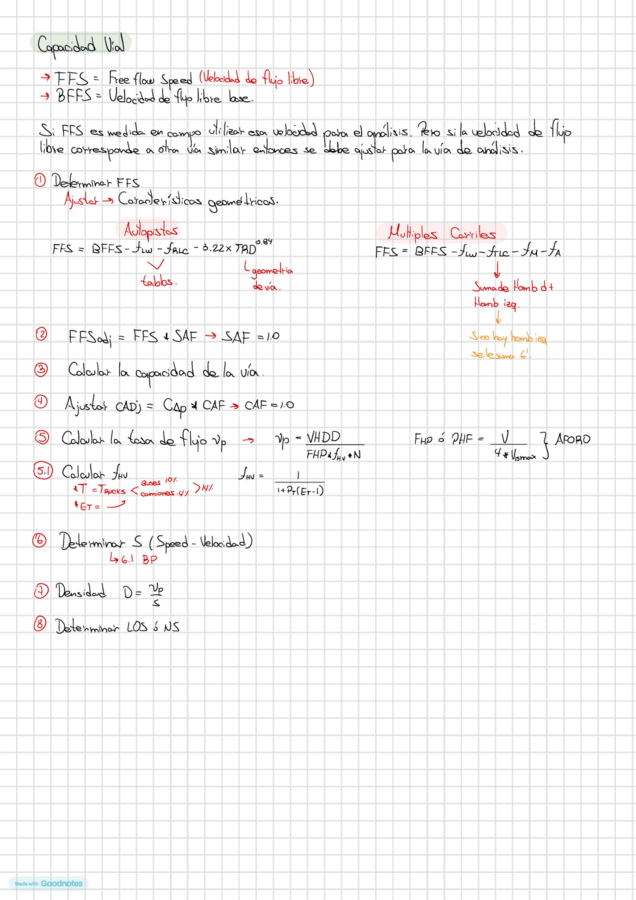 Capacidad Vial
→ FFS = Free flow Speed (Velocidad de flujo libre)
→ BFFS = Velocidad de flujo libre base.
Si FFS es medida en campo utilizar esa velocidad para el análisis. Pero si la velocidad de flujo
libre corresponde a otra vía similar entonces se debe ajustar para la vía de análisis.
① Determinar FFS
Ajustar → Características geométricas.
Autopistas
FFS = BFFS - fLW - fRLC - 3.22 × TRD^0.84
tablas.
geometria
de vía.
Multiples Carriles
FFS = BFFS - fLW - fTLC - fM - fA
Suma de Homb d +
Homb izq.
Si no hay homb izq
se le suma 6'
② FFSadj = FFS * SAF → SAF = 1.0
③ Calcular la capacidad de la vía.
④ Ajustar CAdj = CAp * CAF → CAF = 1.0
⑤ Calcular la tasa de flujo vp → vp = VHDD / FHP * fHV * N
FHP ó PHF = V / 4 * V15max } AFORO
5.1 Calcular fHV
* T = Trucks < buses 10% camiones 4% > 14%
* ET =
fHV = 1 / 1 + PT (ET - 1)
⑥ Determinar S (Speed - Velocidad)
↳ 6.1 BP
⑦ Densidad D = vp / S
⑧ Determinar LOS ó NS
Made with Goodnotes